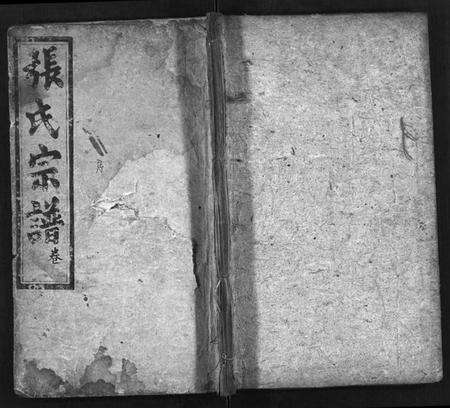 張氏宗譜卷